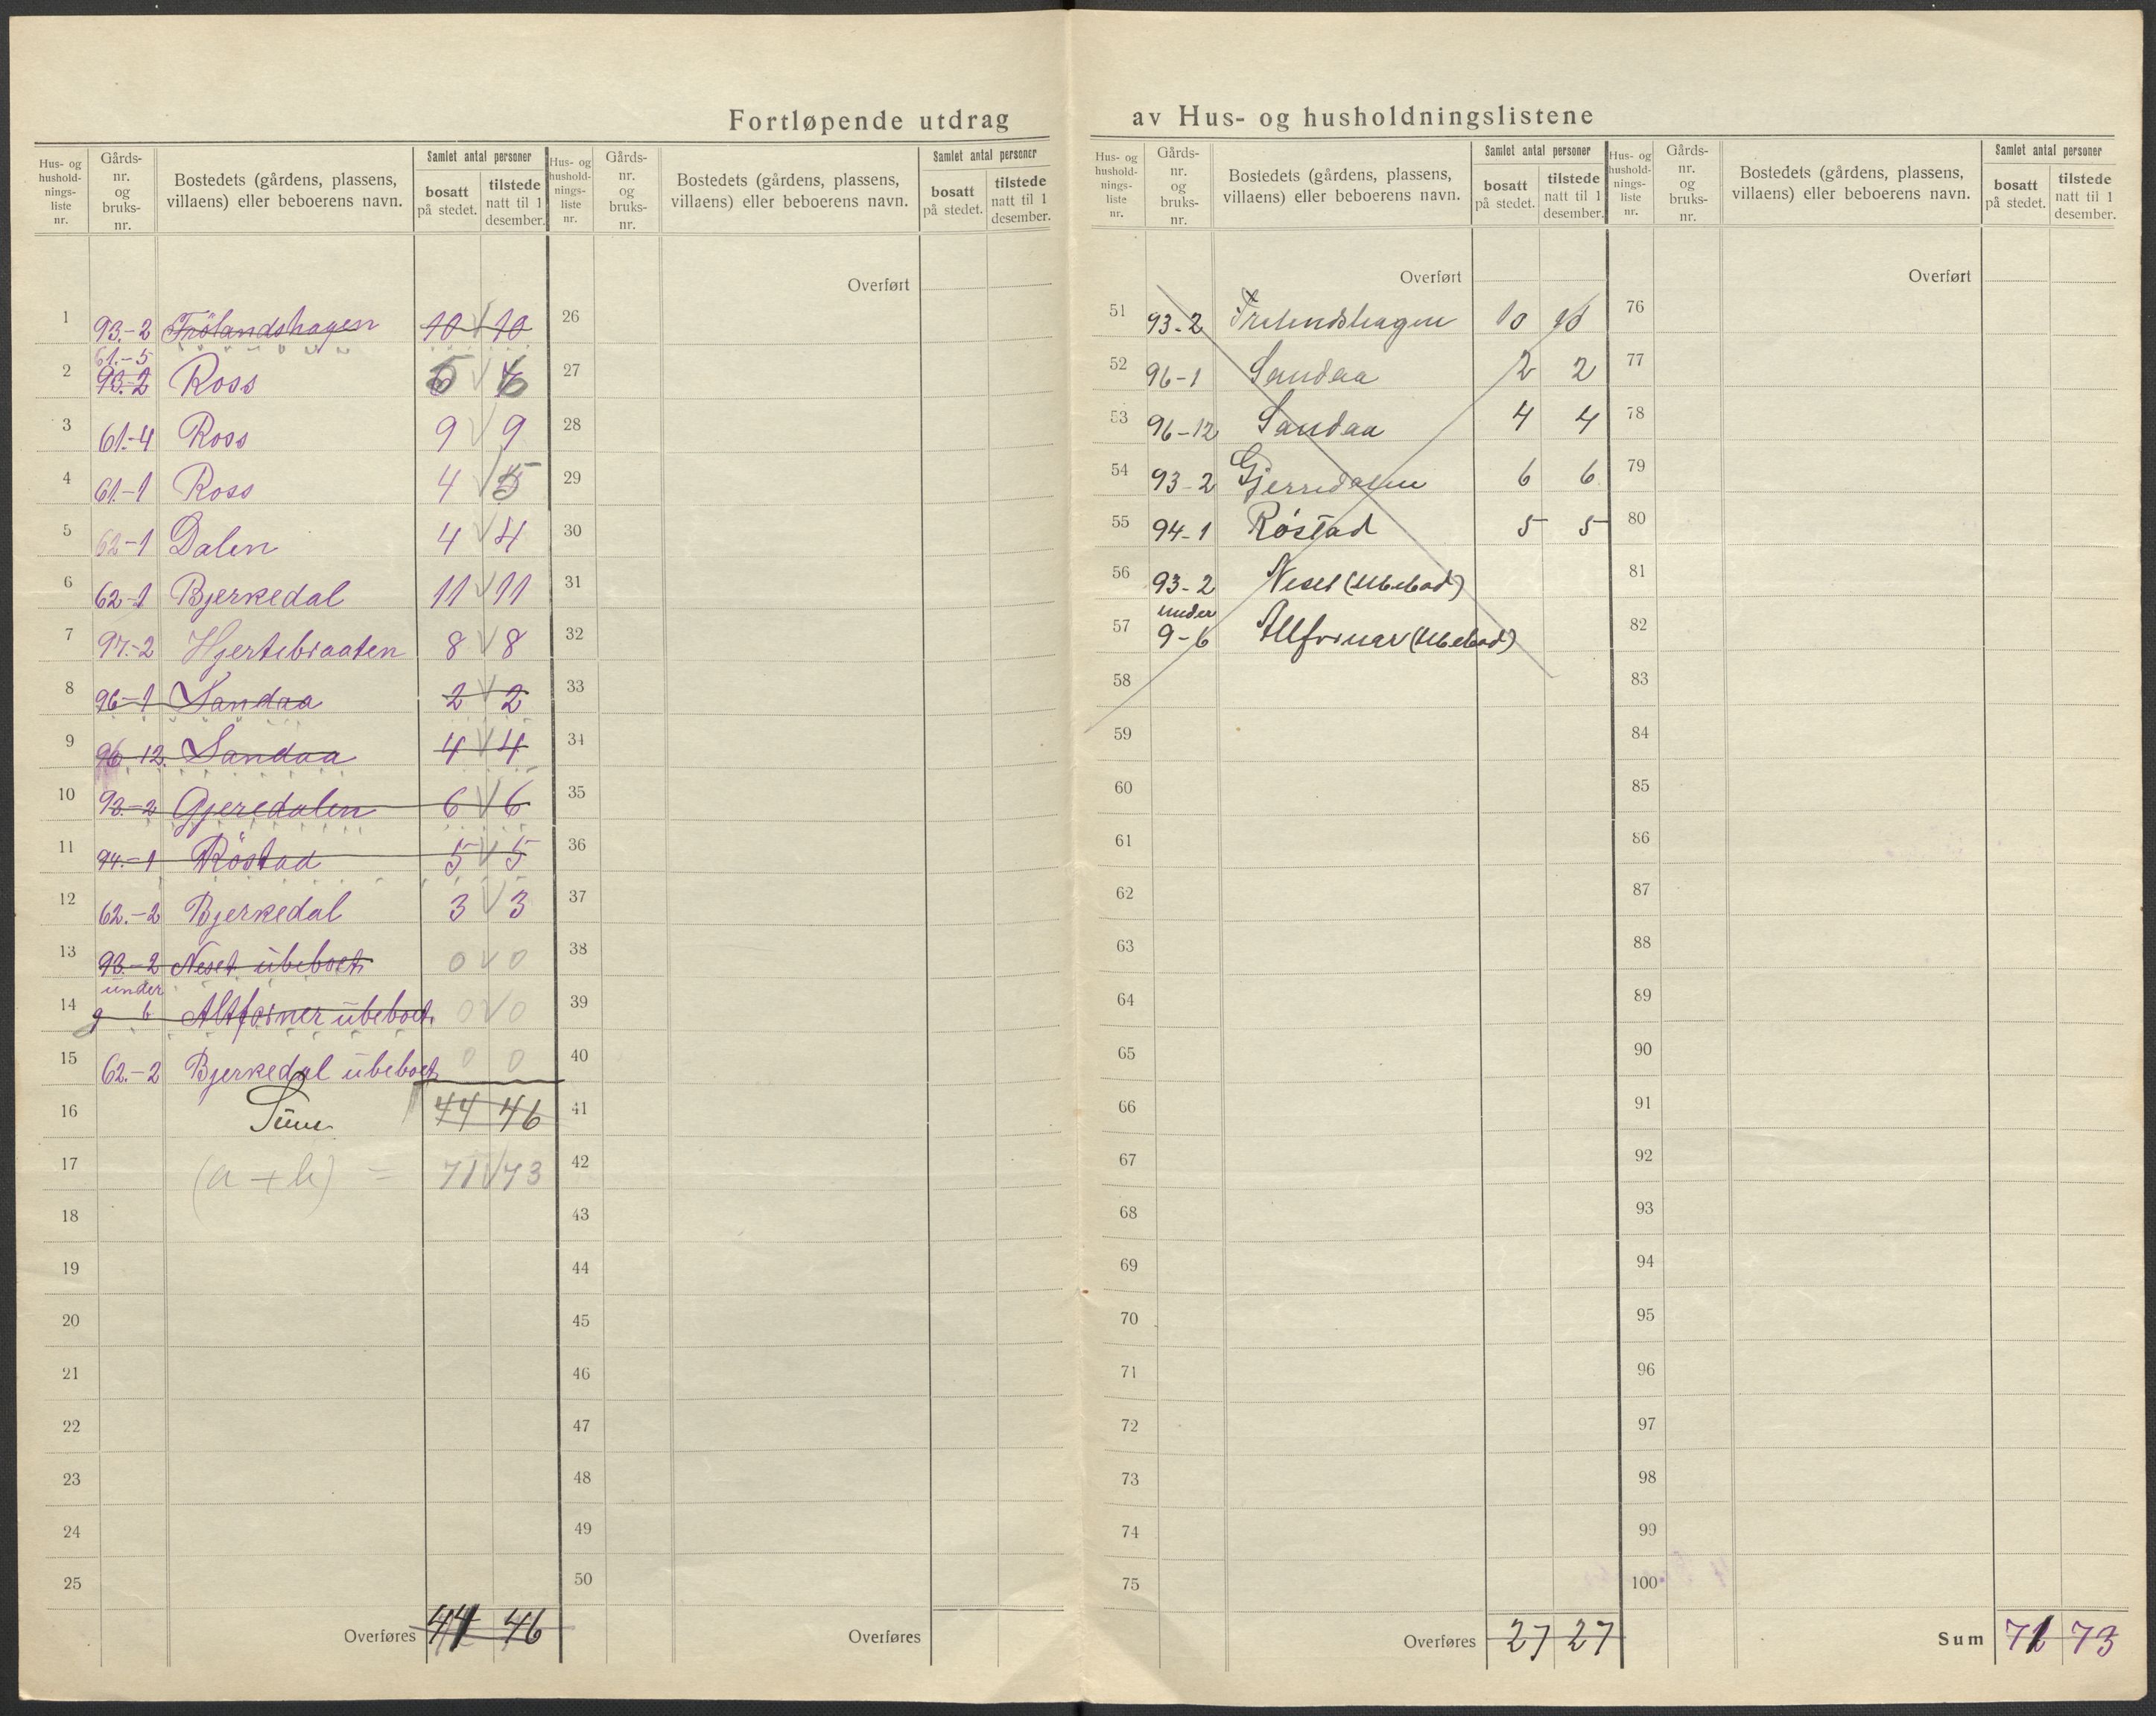 Fortløpende utdrag av Hus- og husholdningslistene
Hus- og husholdnings-liste nr. Gårds-nr. og bruks-nr. Bostedets (gårdens, plassens, villaens) eller beboerens navn. Samlet antal personer bosatt på stedet. tilstede natt til 1 desember.
1 93.-2 Frölandshagen 10 10
61.-5
2 93.-2 Ross
3 61.-4 Ross 9 9
4 61.-1 Ross 4 5
5 62-1 Dalen 4 4
6 62-1 Bjerkedal 11 11
7 97.-2 Hjertebraaten 8 8
8 96-1 Sandaa 2 2
9 96 12. Sandaa 4 4
10 93.-2 Gjeredalen 6 6
11 94.-1 Röstad 5 5
12 62.-2 Bjerkedal 3 3
13 93.-2 Neset ubeboet 0 0
under
14 9 6 Altforner ubeboet. 0 0
15 62.-2 Bjerkedal ubeboet 0 0
16 Sum 44 46
17 (a+b) = 71 73
18
19
20
21
22
23
24
25
Overføres 44 46
Hus- og husholdnings-liste nr. Gårds-nr. og bruks-nr. Bostedets (gårdens, plassens, villaens) eller beboerens navn. Samlet antal personer bosatt på stedet. tilstede natt til 1 desember.
Overført
26
27
28
29
30
31
32
33
34
35
36
37
38
39
40
41
42
43
44
45
46
47
48
49
50
Overføres
Hus- og husholdnings-liste nr. Gårds-nr. og bruks-nr. Bostedets (gårdens, plassens, villaens) eller beboerens navn. Samlet antal personer bosatt på stedet. tilstede natt til 1 desember.
Overført
51 93-2 10 10
52 96-1 Sandaa 2 2
53 96-12 Sandaa 4 4
54 93-2 Gjerredalen 6 6
55 94-1 Röstad 5 5
56 93-2 Neset
under
57 9-6
58
59
60
61
62
63
64
65
66
67
68
69
70
71
72
73
74
75
Overføres 27 27
Hus- og husholdnings-liste nr. Gårds-nr. og bruks-nr. Bostedets (gårdens, plassens, villaens) eller beboerens navn. Samlet antal personer bosatt på stedet. tilstede natt til 1 desember.
Overført
76
77
78
79
80
81
82
83
84
85
86
87
88
89
90
91
92
93
94
95
96
97
98
99
100
Sum 71 73